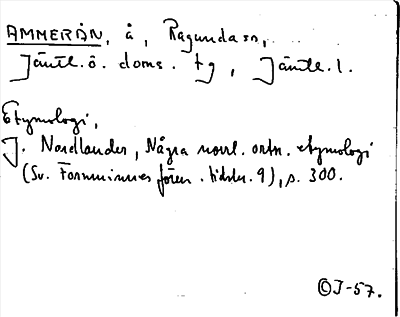 AMMERÅN, å, Ragunda sn,
Jämtl. ö. doms. tg, Jämtl. l.
Etymologi,
J. Nordlander, Några norrl. ortn. etymologi
(Sv. Fornminnesfören. tidskr. 9), s. 300.
©J-57.